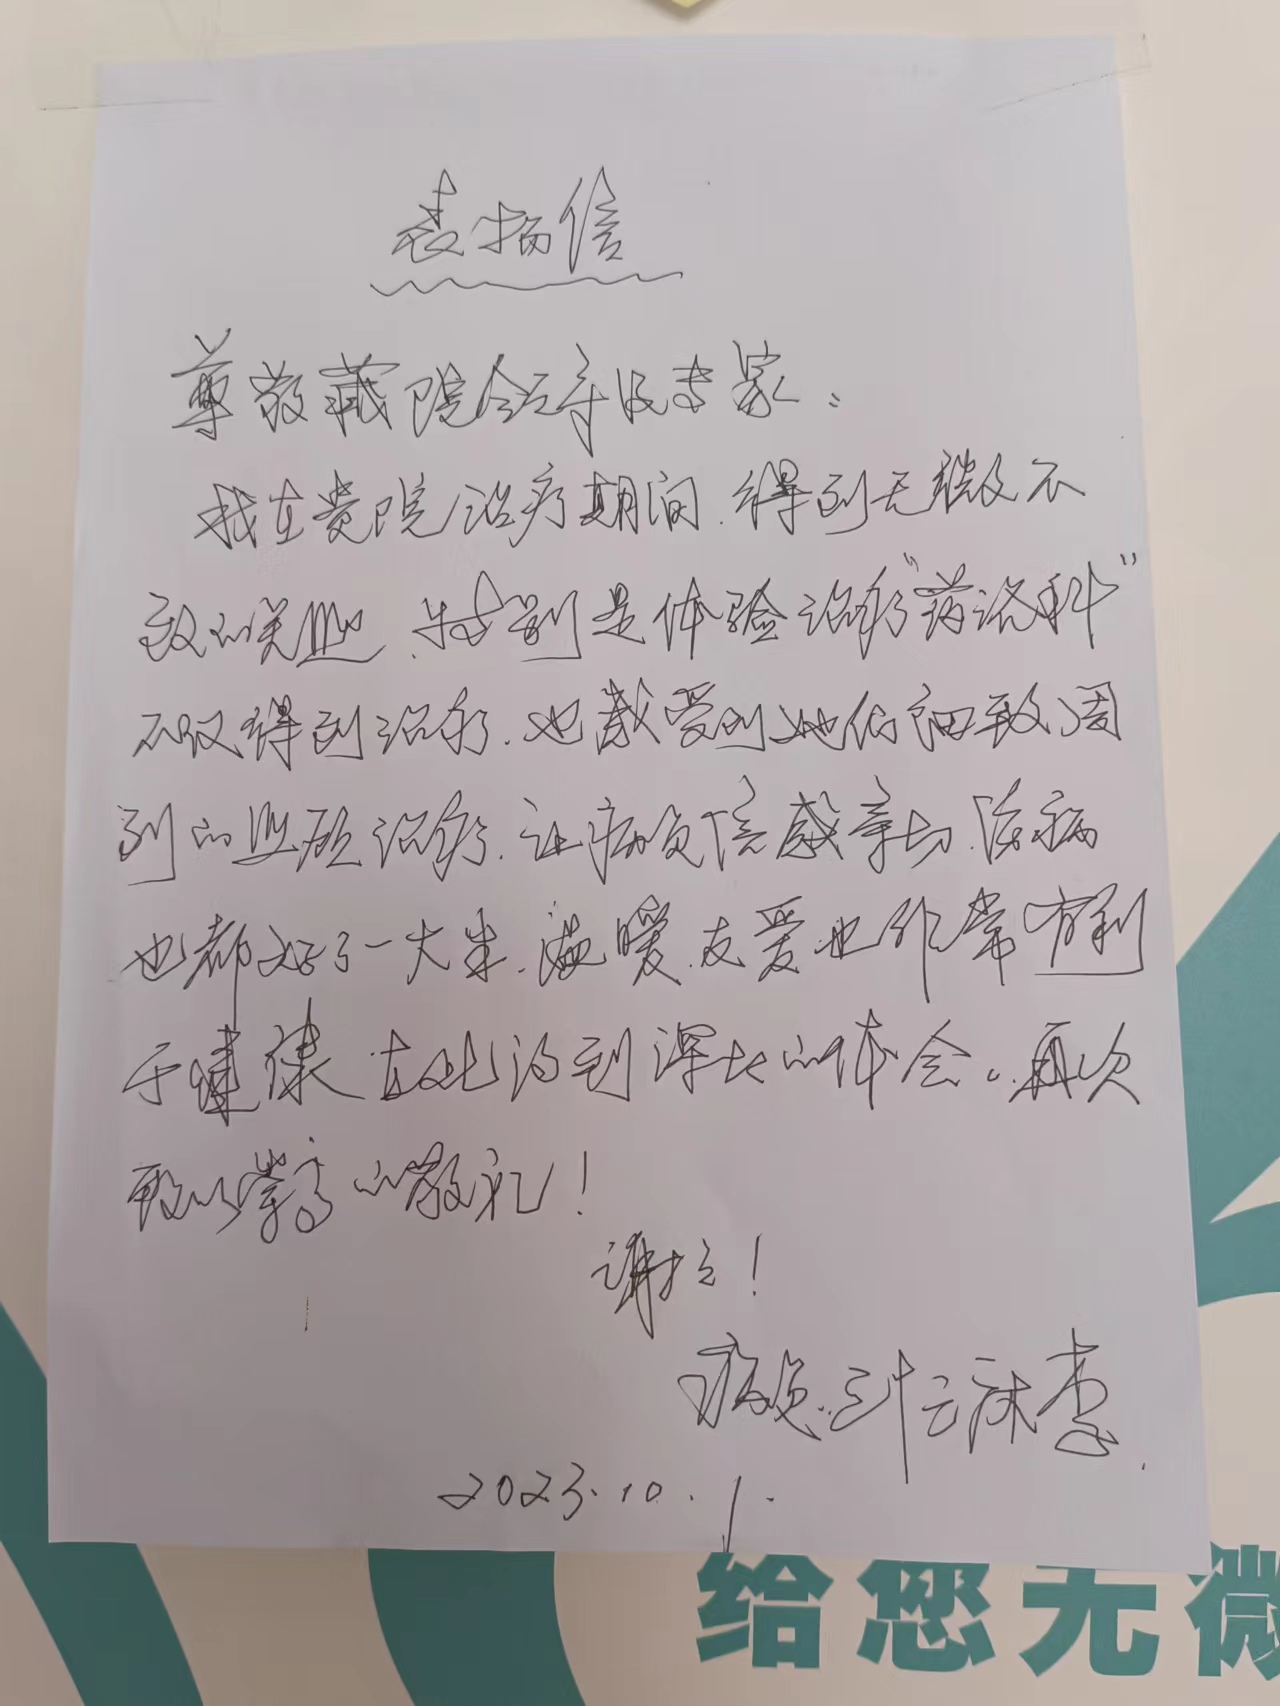 表扬信
尊敬藏院领导及专家：
我在贵院治疗期间.得到无微不
致的关照.特别是体验治疗“药浴科”
不仅得到治疗.也感受到她们细致周
到的照顾治疗.让病员倍感亲切.治病
也都好了一大半.温暖.友爱也非常有利
于健康.在此得到深切的体会。再次
致以崇高的敬礼！
谢谢！
病员
2023.10.1.
给您无微